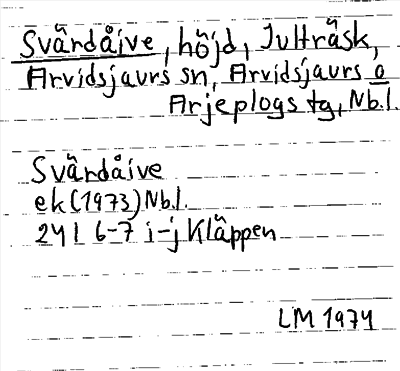 Svärdåive, höjd, Jutträsk,
Arvidsjaurs sn, Arvidsjaurs o
Arjeplogs tg, Nb.l.
Svärdåive
ek (1973) Nb.l.
24I 6-7 i-j Kläppen
LM 1974